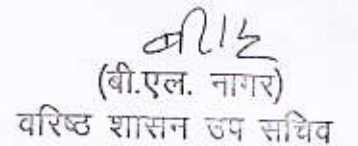 (बी.एल. नागर)
वरिष्ठ शासन उप सचिव